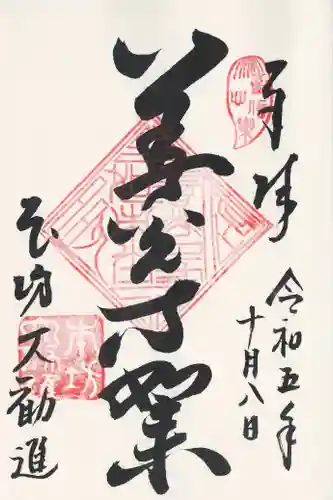 奉拝
令和五年
十月八日
善光寺如来
本坊大勧進